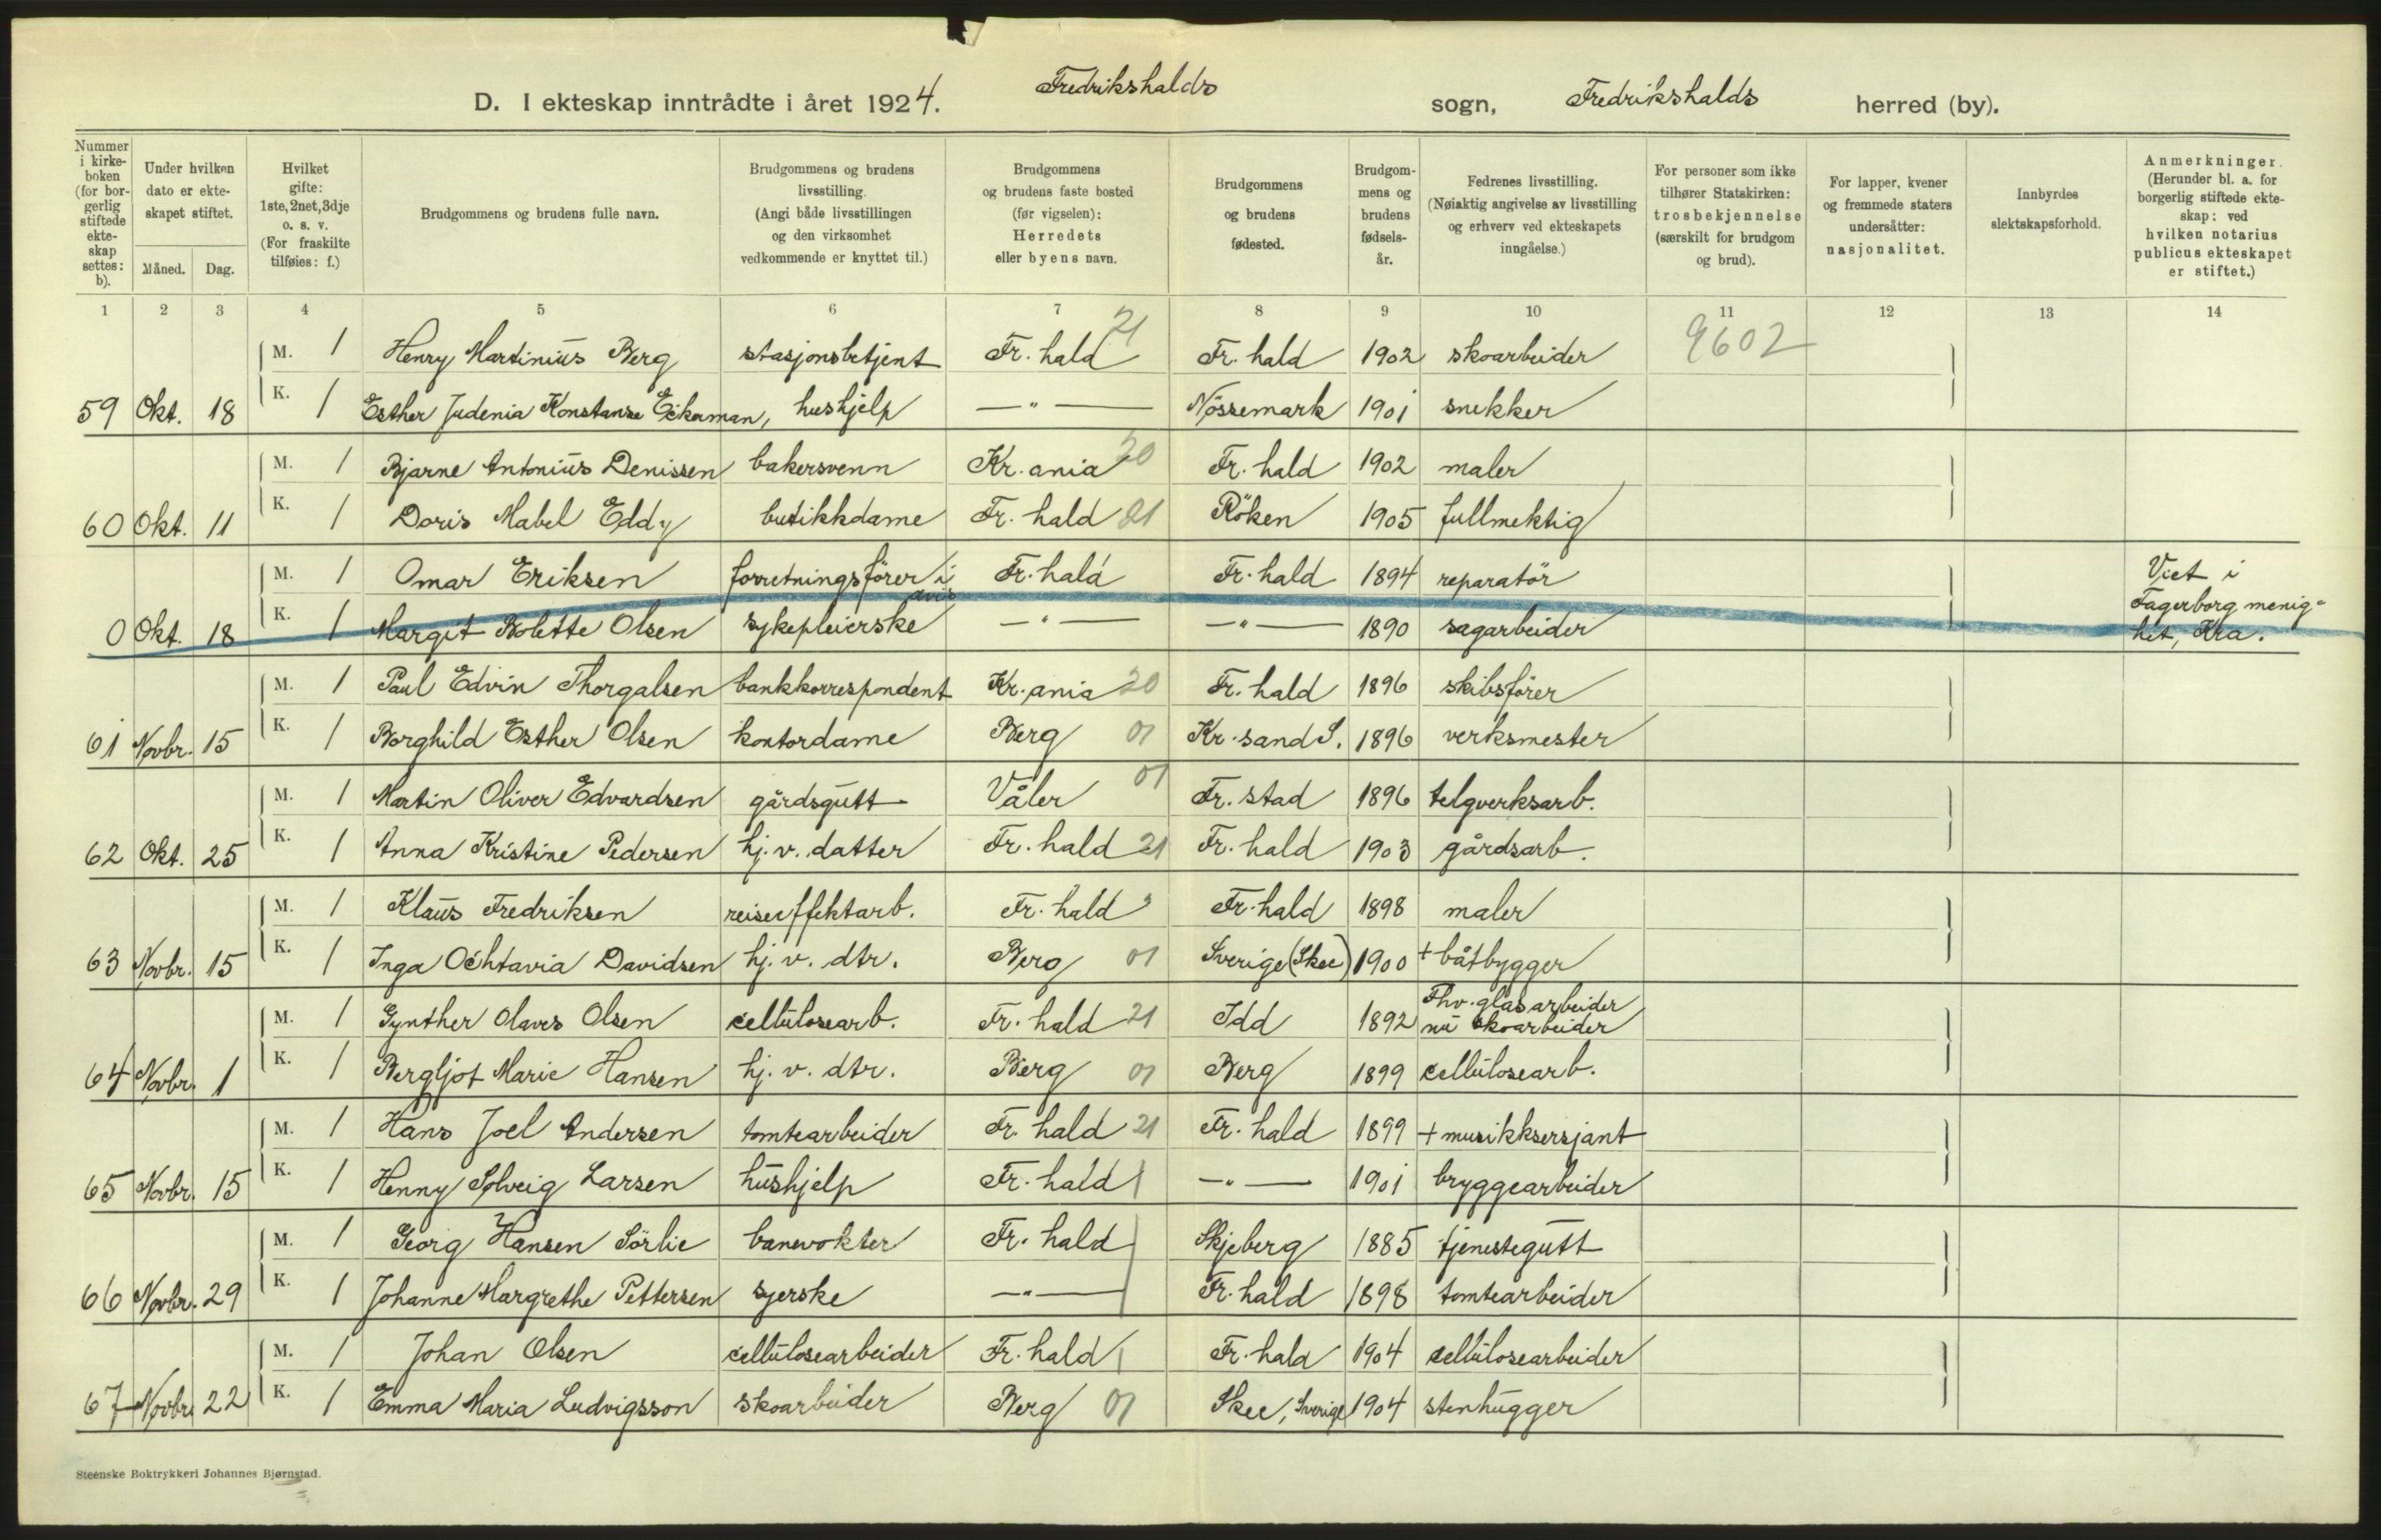 D. I ekteskap inntrådte i året 1924. Fredrikshalds sogn, Fredrikshalds herred (by).
Nummer i kirkeboken (for borgerlig stiftede ekteskap settes: b).
Under hvilken dato er ekteskapet stiftet.
Måned. Dag.
Hvilket gifte: 1ste, 2net, 3dje o. s. v. (For fraskilte tilføies: f.)
Brudgommens og brudens fulle navn.
Brudgommens og brudens livsstilling. (Angi både livsstillingen og den virksomhet vedkommende er knyttet til.)
Brudgommens og brudens faste bosted (før vigselen): Herredets eller byens navn.
Brudgommens og brudens fødested.
Brudgommens og brudens fødselsår.
Fedrenes livsstilling. (Nøiaktig angivelse av livsstilling og erhverv ved ekteskapets inngåelse.)
For personer som ikke tilhører Statskirken: trosbekjennelse (særskilt for brudgom og brud).
For lapper, kvener og fremmede staters undersåtter: nasjonalitet.
Innbyrdes slektskapsforhold.
Anmerkninger. (Herunder bl. a. for borgerlig stiftede ekteskap: ved hvilken notarius publicus ekteskapet er stiftet.)
1 2 3 4 5 6 7 8 9 10 11 12 13 14
M. 1 Henry Martinius Berg stasjonsbetjent Fr. hald 21 Fr. hald 1902 skoarbeider 9602
59 Okt. 18 K. 1 Esther Judenia Konstanse Eckerman, hushjelp —"— Nössemark 1901 snekker
M. 1 Bjarne Antonius Denissen bakersvenn Kr. ania 20 Fr. hald 1902 maler
60 Okt. 11 K. 1 Doris Mabel Eddy butikkdame Fr. hald 21 Röken 1905 fullmektig
M. 1 Omar Eriksen forretningsförer i avis Fr. hald Fr. hald 1894 reparatör Viet i
0 Okt. 18 K. 1 Margit Bolette Olsen sykepleierske —"— —"— 1890 sagarbeider Fagerborg menighet, Kra.
M. 1 Paul Edvin Thorgalsen bankkorrespondent Kr. ania 20 Fr. hald 1896 skibsförer
61 Novbr. 15 K. 1 Borghild Esther Olsen kontordame Berg 01 Kr. sand S. 1896 verksmester
M. 1 Martin Oliver Edvardsen gårdsgutt Våler 01 Fr. stad 1896 telgverksarb.
62 Okt. 25 K. 1 Anna Kristine Pedersen hj. v. datter Fr. hald 21 Fr. hald 1903 gårdsarb.
M. 1 Klaus Fredriksen reiseeffektarb. Fr. hald Fr. hald 1898 maler
63 Novbr. 15 K. 1 Inga Ochtavia Davidsen hj. v. dtr. Berg 01 Sverige (Skee) 1900 + båtbygger
M. 1 Gynther Olaves Olsen cellulosearb. Fr. hald 21 Idd 1892 Fhv. glasarbeider nu skoarbeider
64 Novbr. 1 K. 1 Bergljot Marie Hansen hj. v. dtr. Berg 01 Berg 1899 cellulosearb.
M. 1 Hans Joel Andersen tomtearbeider Fr. hald 21 Fr. hald 1899 + musikksersjant
65 Novbr. 15 K. 1 Henny Solveig Larsen hushjelp Fr. hald —"— 1901 bryggearbeider
M. 1 Georg Hansen Sörlie banevokter Fr. hald Skjeberg 1885 tjenestegutt
66 Novbr. 29 K. 1 Johanne Margrethe Pettersen syerske —"— Fr. hald 1898 tomtearbeider
M. 1 Johan Olsen cellulosearbeider Fr. hald Fr. hald 1904 cellulosearbeider
67 Novbr. 22 K. 1 Emma Maria Ludvigsson skoarbeider Berg 01 Skee, Sverige 1904 stenhugger
Steenske Boktrykkeri Johannes Bjørnstad.